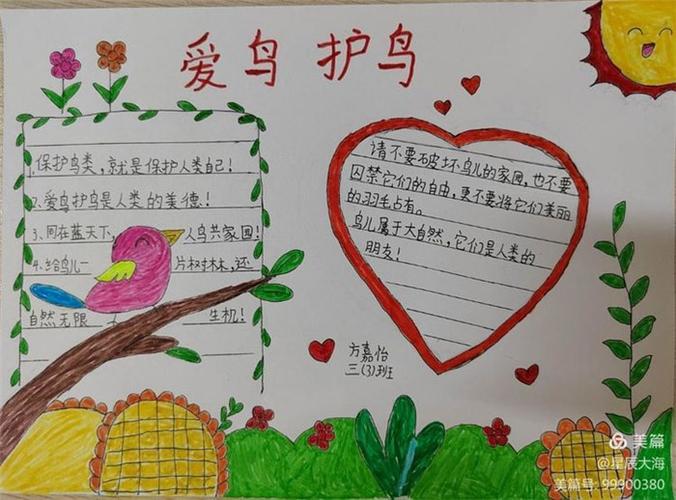 爱鸟 护鸟
1.保护鸟类，就是保护人类自己！
2.爱鸟护鸟是人类的美德！
3、同在蓝天下，人鸟共家园！
4.给鸟儿一片树林，还
自然无限 生机！
请不要破坏鸟儿的家园，也不要
囚禁它们的自由，更不要将它们美丽
的羽毛占有。
鸟儿属于大自然，它们是人类的
朋友！
方嘉怡
三(3)班
美篇
@星辰大海
美篇号：99900380